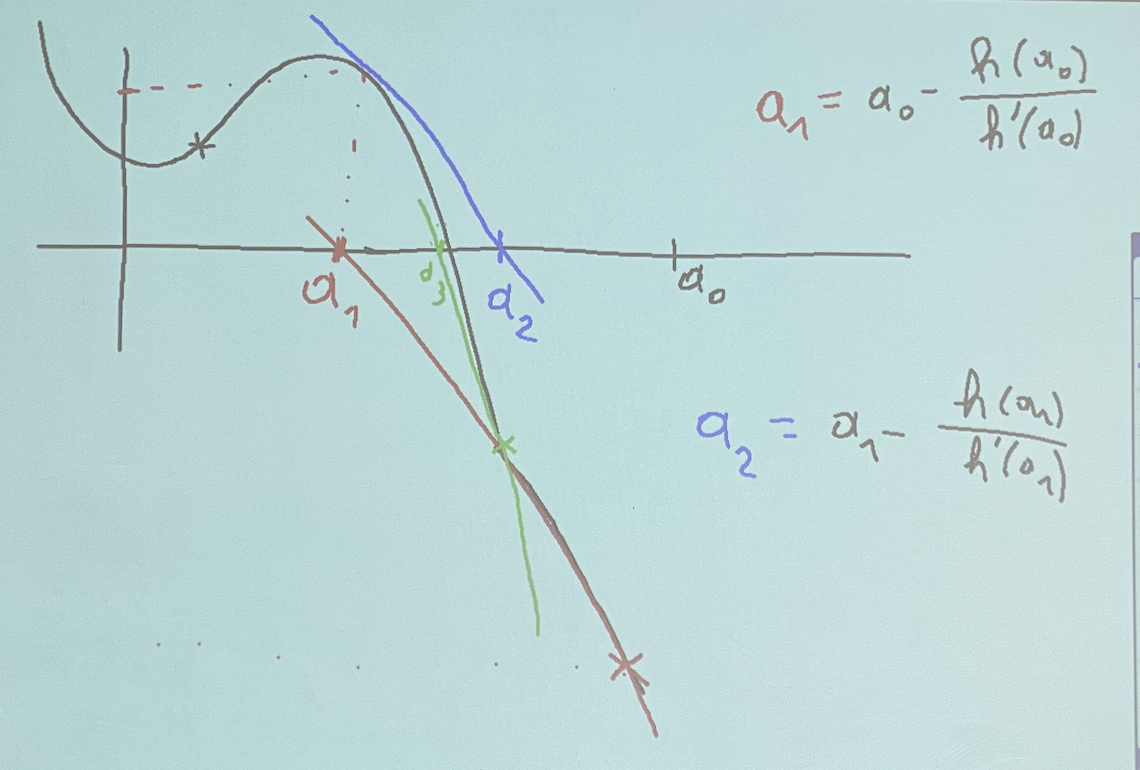 a₁ = a₀ - h(a₀)/h'(a₀)
a₁ a₃ a₂ a₀
a₂ = a₁ - h(a₁)/h'(a₁)